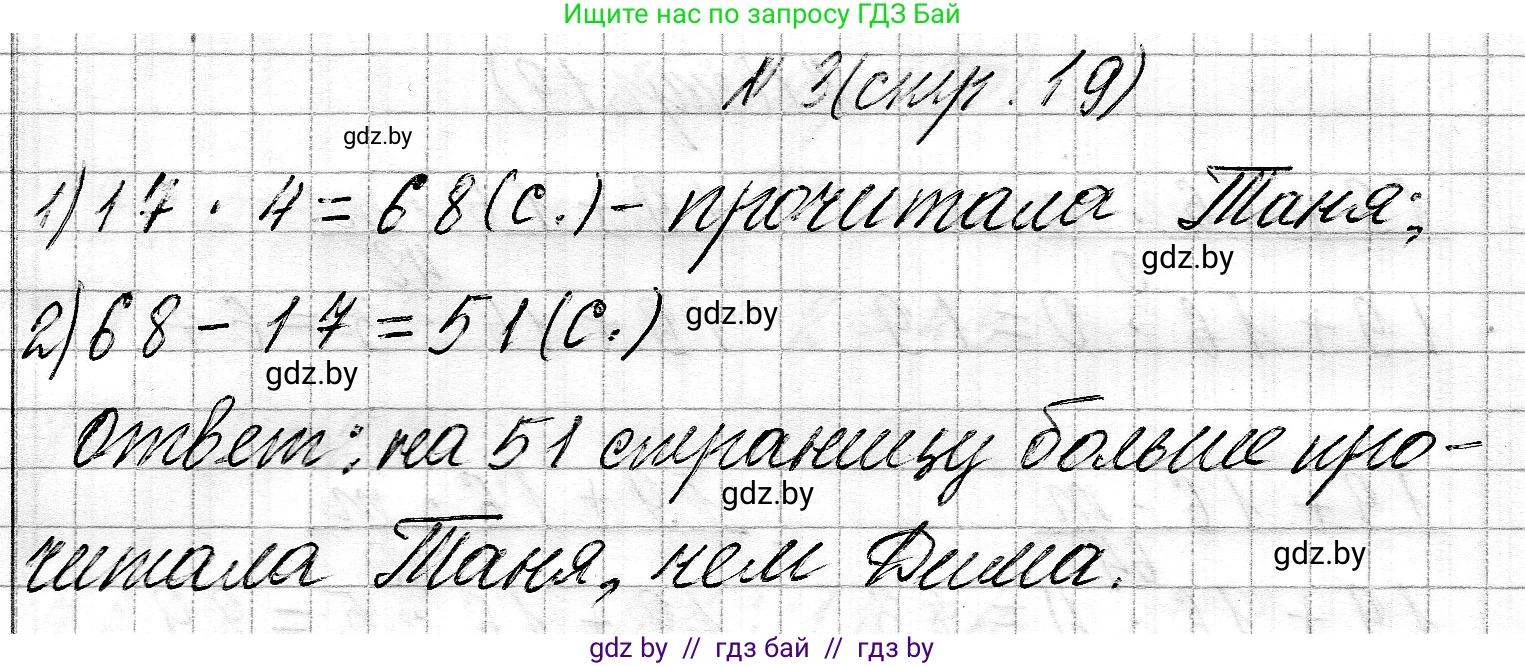 Ищите нас по запросу ГДЗ Бай
№ 3(стр. 19)
gdz.by
1) 17 · 4 = 68 (с.) - прочитала Таня;
gdz.by
2) 68 - 17 = 51 (с.)
gdz.by
gdz.by
Ответ: на 51 страницу больше про-
gdz.by
читала Таня, чем Дима.
gdz.by
gdz by // гдз бай // гдз by